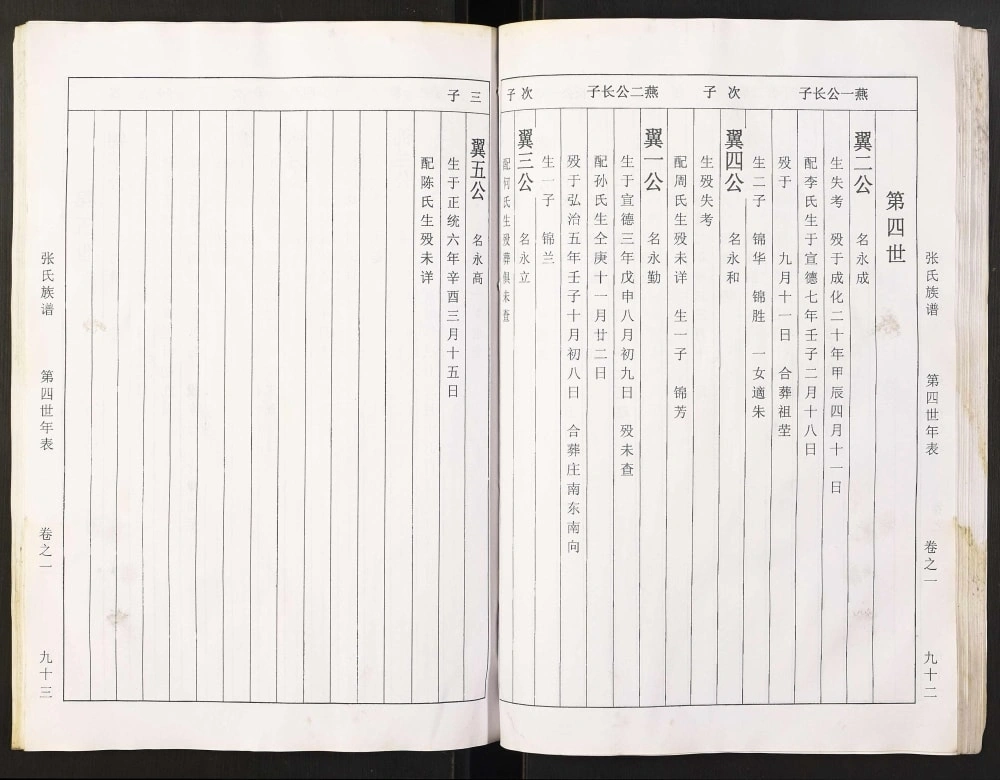 张氏族谱 第四世年表 卷之一 九十二
第四世
燕一公长子
翼二公 名永成
生失考 殁于成化二十年甲辰四月十一日
配李氏生于宣德七年壬子二月十八日
殁于 九月十一日 合葬祖茔
生二子 锦华 锦胜 一女適朱
次子
翼四公 名永和
生殁失考
配周氏生殁未详 生一子 锦芳
燕二公长子
翼一公 名永勤
生于宣德三年戊申八月初九日 殁未查
配孙氏生仝庚十一月廿二日
殁于弘治五年壬子十月初八日 合葬庄南东南向
生一子 锦兰
次子
翼三公 名永立
配何氏生殁葬俱未查
三子
翼五公 名永高
生于正统六年辛酉三月十五日
配陈氏生殁未详
张氏族谱 第四世年表 卷之一 九十三